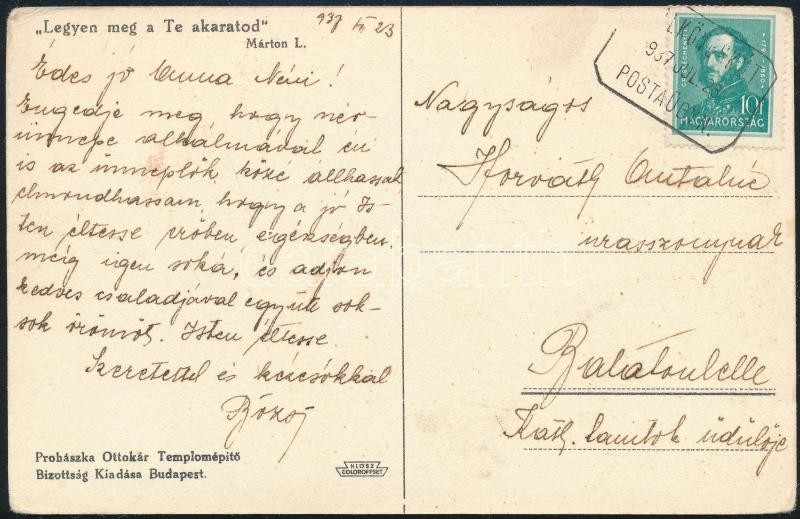 „Legyen meg a Te akaratod"
Márton L.
937
23
Édes jó Anna Néni!
Engedje meg, hogy név-
ünnepe alkalmával én
is az ünneplők közé állhassak
elmondhassam, hogy a jó Is-
ten éltesse erőben, egészségben
még igen soká, és adjon
kedves családjával együtt sok-
sok örömöt. Isten éltesse
Szeretettel és kézcsókkal
Prohászka Ottokár Templomépitő
Bizottság Kiadása Budapest.
KLÖSZ
COLOROFFSET
937 JUL
POSTAÜGYN
10f
MAGYARORSZÁG
Nagyságos
Horváth Antalné
urasszonynak
Balatonlelle
Kath. tanítók üdülője
darabanth